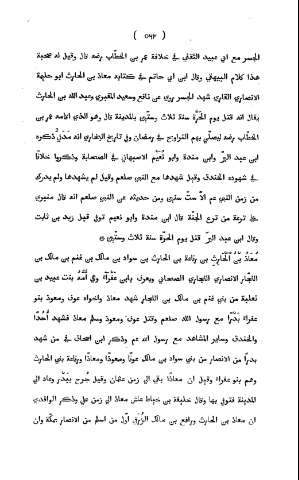 ( ٥٦٢ )
الجسر مع ابي عبيد الثقفي في خلافة عمر بن الخطّاب رضه قال وقيل له صحبة
هذا كلام البيهقي وقال ابن ابي حاتم في كتابه معاذ بن الحارث ابو حليمة
الانصاري القاري شهد الجسر روى عن نافع وسعيد المقبري وعبد الله بن الحارث
يقال انه قتل يوم الحَرَّة سنة ثلاث وستّين بالمدينة قال وهو الذي اقامه عمر بن
الخطّاب رضه ليصلّي بهم التراويح في رمضان وفي تاريخ البخاري انه مَدَنِيّ ذكره
ابن عبد البرّ وابن مندة وابو نُعَيْم الاصبهاني في الصحابة وذكروا خلافًا
في شهوده الخندق وقيل شهدها مع النبي صلعم وقيل لم يشهدها ولم يدرك
من زمن النبي صلعم الّا ستّ سنين ومن حديثه عن النبي صلعم انه قال منبري
على ترعة من ترع الجنّة قال ابن مندة وابو نعيم توفي قبل زيد بن ثابت
وقال ابن عبد البرّ قتل يوم الحرّة سنة ثلاث وستّين ۞
مُعَاذ بن الْحَارِث بن رفاعة بن الحارث بن سواد بن مالك بن غنم بن مالك بن
النجّار الانصاري النجاري الصحابي ويعرف بابن عَفْرَاء وهي أُمُّه بنت عبيد بن
ثعلبة من بني غنم بن مالك بن النجار شهد معاذ واخواه عوف ومعوذ بنو
عفراء بَدْرًا مع رسول الله صلعم وقتل عوف ومعوذ وسلم معاذ فشهد أُحُدًا
والخندق وساير المشاهد مع رسول الله عم وذكر ابن اسحاق في من شهد
بدرًا من الانصار من بني سواد بن مالك عوفًا ومعوذًا ومعاذًا ورفاعة بني الحارث
وهم بنو عفراء وقيل ان معاذًا بقي الى زمن عثمان وقيل جُرح ببَدْر وعاد الى
المدينة فتوفي بها وقال خليفة بن خياط عاش معاذ الى زمن علي وذكر الواقدي
ان معاذ بن الحارث ورافع بن مالك الزُّرَقي اوّل من اسلم من الانصار بمكّة وان